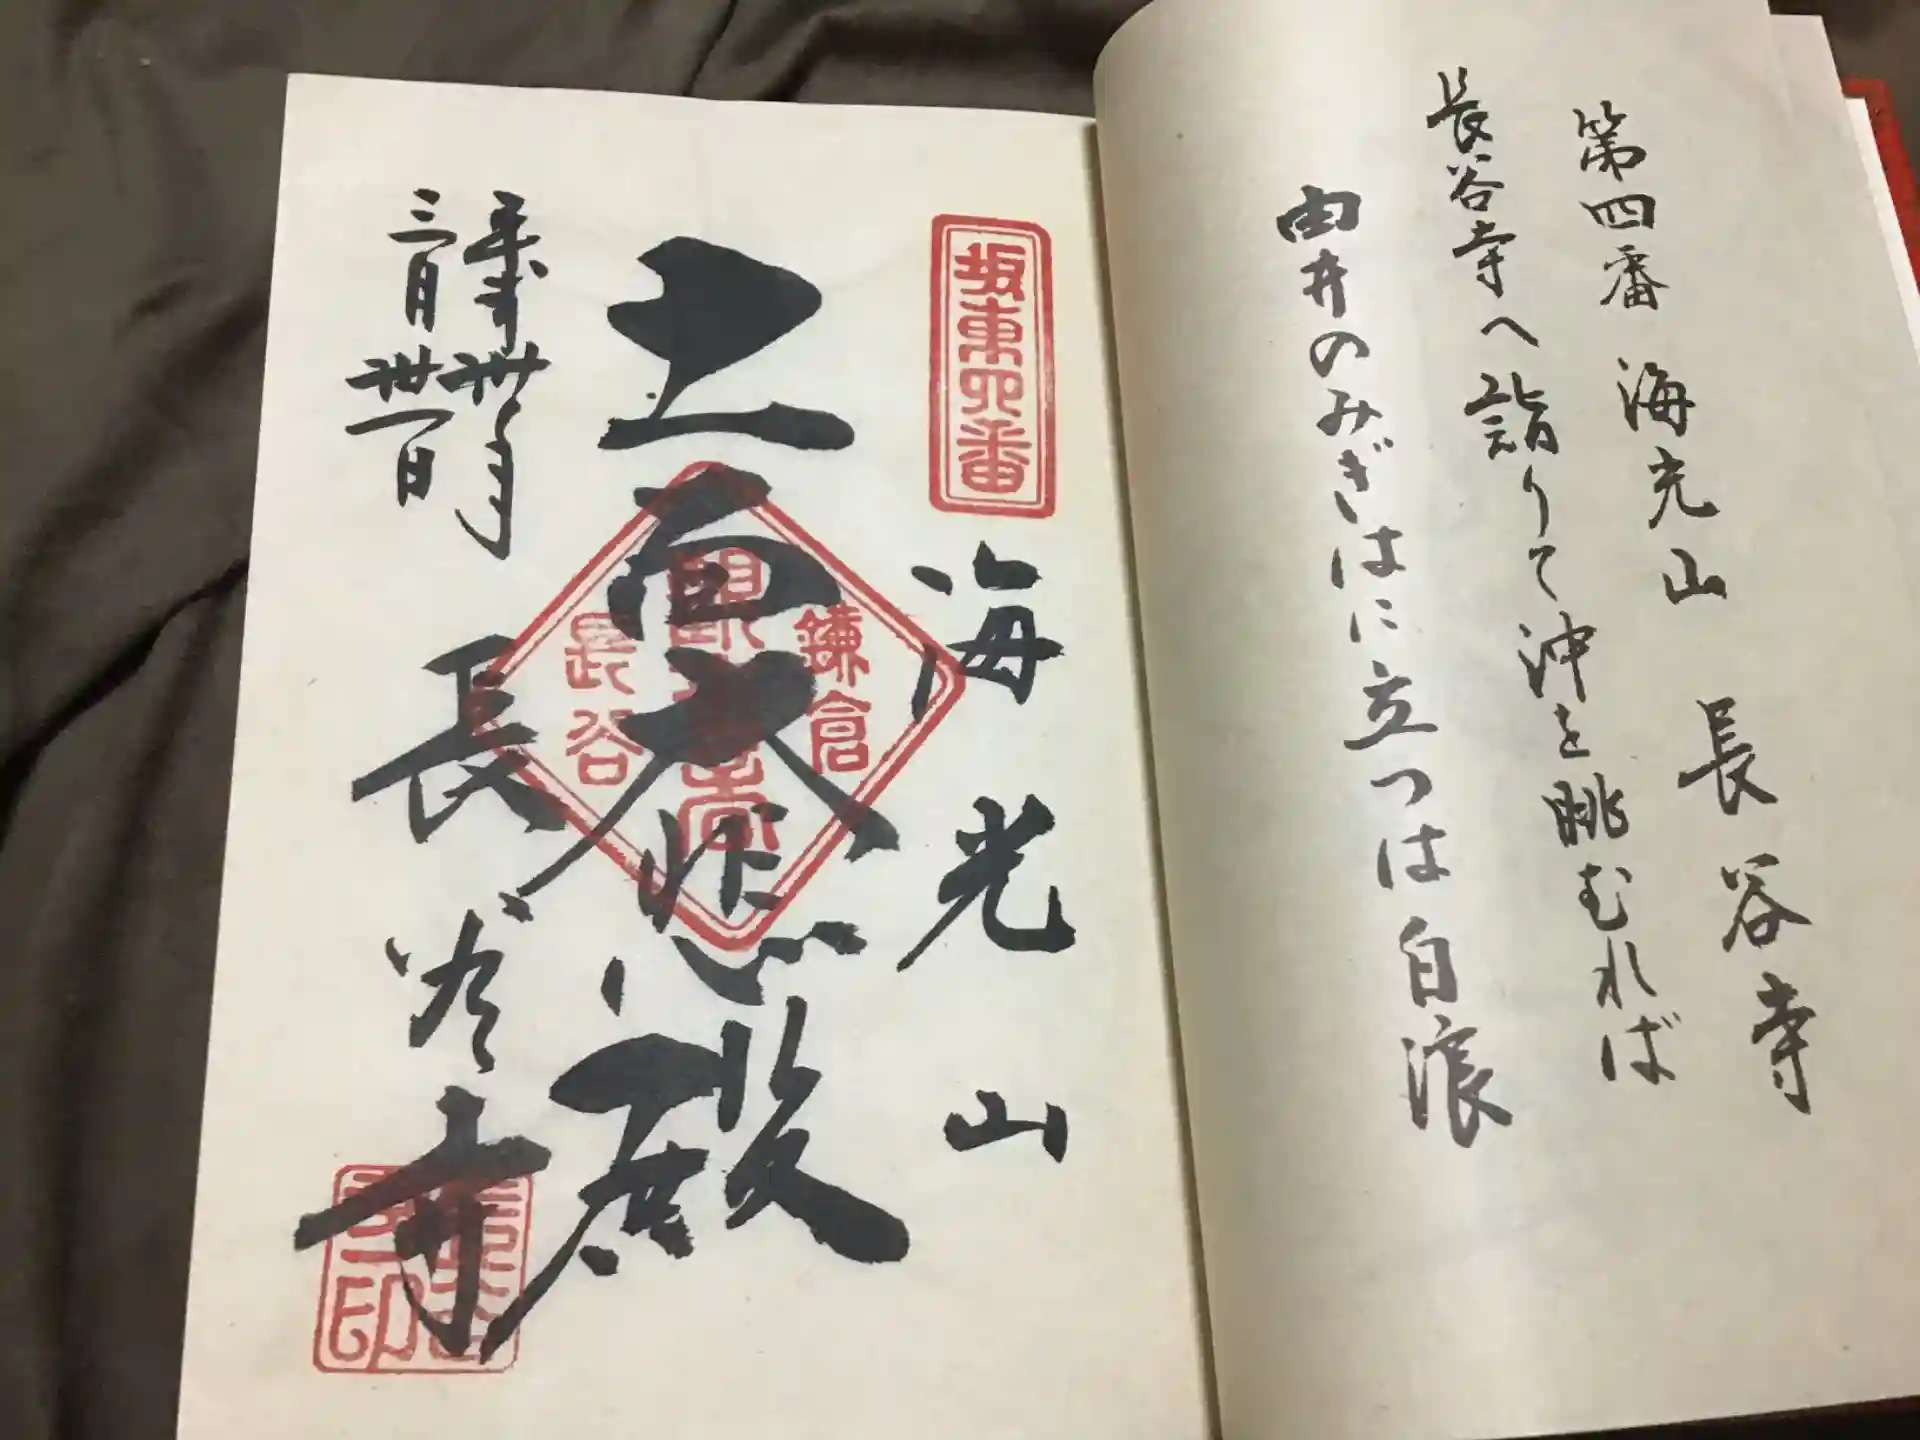 第四番 海光山 長谷寺
長谷寺へ詣りて沖を眺むれば
由井のみぎはに立つは白浪
坂東四番
海光山
十一面大悲殿
鎌倉
長谷
平成卅年
三月卅一日
長谷寺